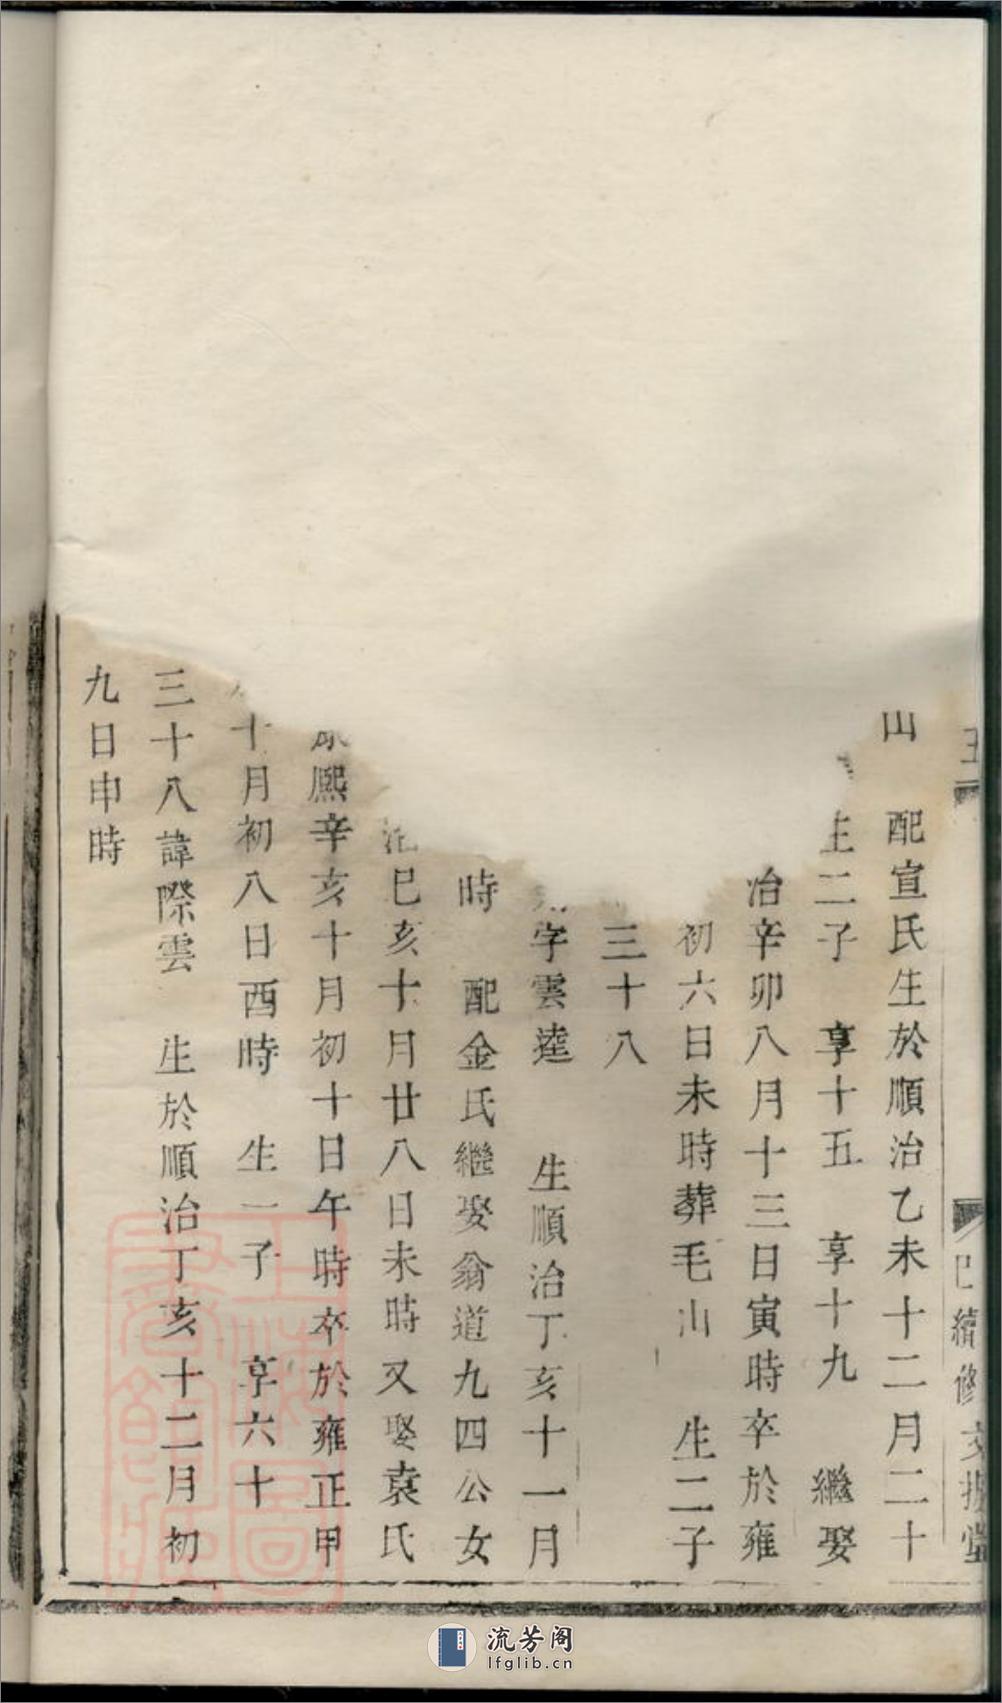 山 配宣氏生於順治乙未十二月二十
二子 享十五 享十九 繼娶
治辛卯八月十三日寅時卒於雍
初六日未時葬毛山 生二子
三十八
字雲逵 生順治丁亥十一月
時 配金氏繼娶翁道九四公女
巳亥十月廿八日未時又娶袁氏
熙辛亥十月初十日午時卒於雍正甲
十月初八日酉時 生一子 享六十
三十八諱際雲 生於順治丁亥十二月初
九日申時
續修
上海圖書館藏
流芳阁
lfglib.cn